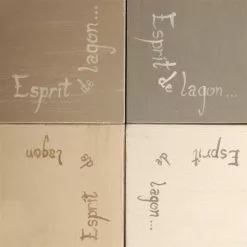 Esprit de lagon...
Esprit
de
lagon...
lagon
de
Esprit
Esprit
de
lagon...